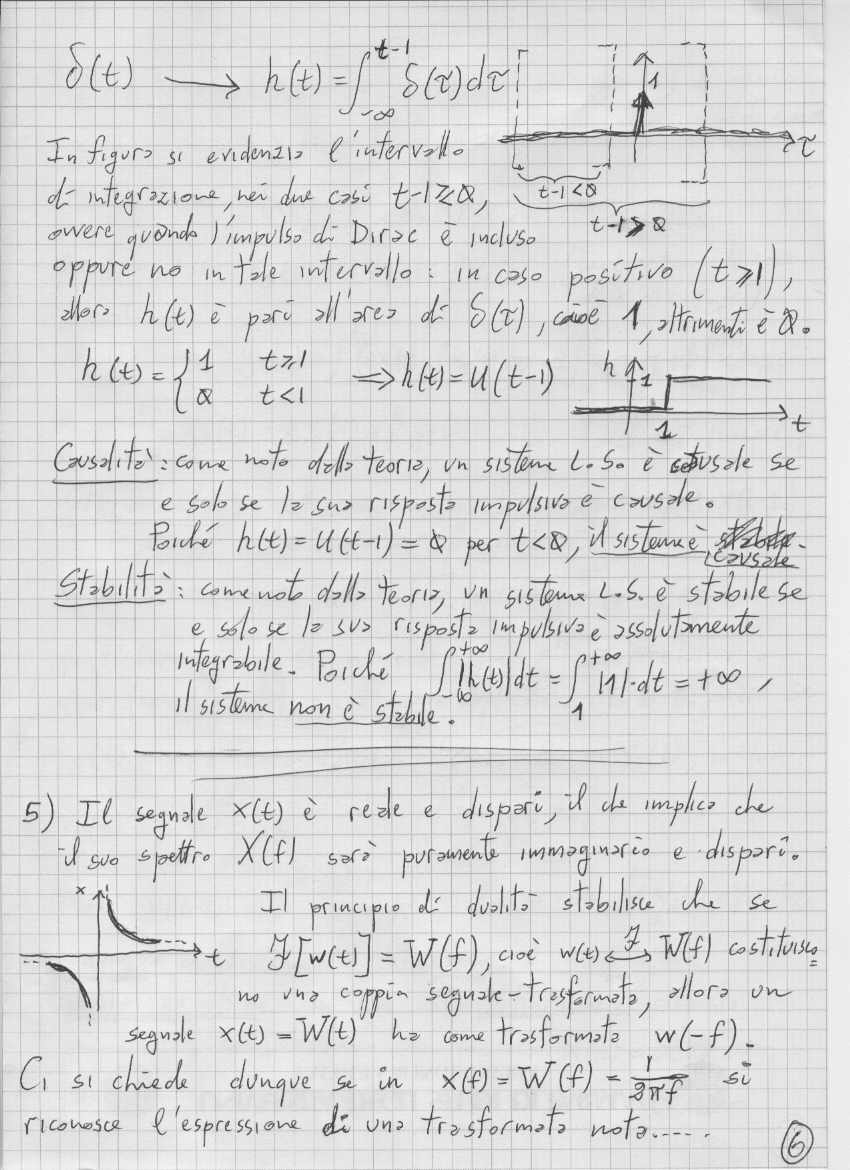 δ(t) → h(t) = ∫_{-∞}^{t-1} δ(τ) dτ
1
τ
t-1<0
t-1>0
In figura si evidenzia l'intervallo
di integrazione, nei due casi t-1≷0,
ovvero quando l'impulso di Dirac è incluso
oppure no in tale intervallo: in caso positivo (t≥1),
allora h(t) è pari all'area di δ(τ), cioè 1, altrimenti è 0.
h(t) = { 1 t≥1
0 t<1 ⇒ h(t) = u(t-1)
h 1
1 t
Causalità: come noto dalla teoria, un sistema L.S. è causale se
e solo se la sua risposta impulsiva è causale.
Poiché h(t) = u(t-1) = 0 per t<0, il sistema è
causale
Stabilità: come noto dalla teoria, un sistema L.S. è stabile se
e solo se la sua risposta impulsiva è assolutamente
integrabile. Poiché ∫_{-∞}^{+∞} |h(t)| dt = ∫_{1}^{+∞} |1|·dt = +∞,
il sistema non è stabile.
5) Il segnale x(t) è reale e dispari, il che implica che
il suo spettro X(f) sarà puramente immaginario e dispari.
x
t
Il principio di dualità stabilisce che se
ℱ[w(t)] = W(f), cioè w(t) ⟷ℱ W(f) costituisco=
no una coppia segnale-trasformata, allora un
segnale x(t) = W(t) ha come trasformata w(-f).
Ci si chiede dunque se in x(f) = W(f) = 1/2πf si
riconosce l'espressione di una trasformata nota.....
6